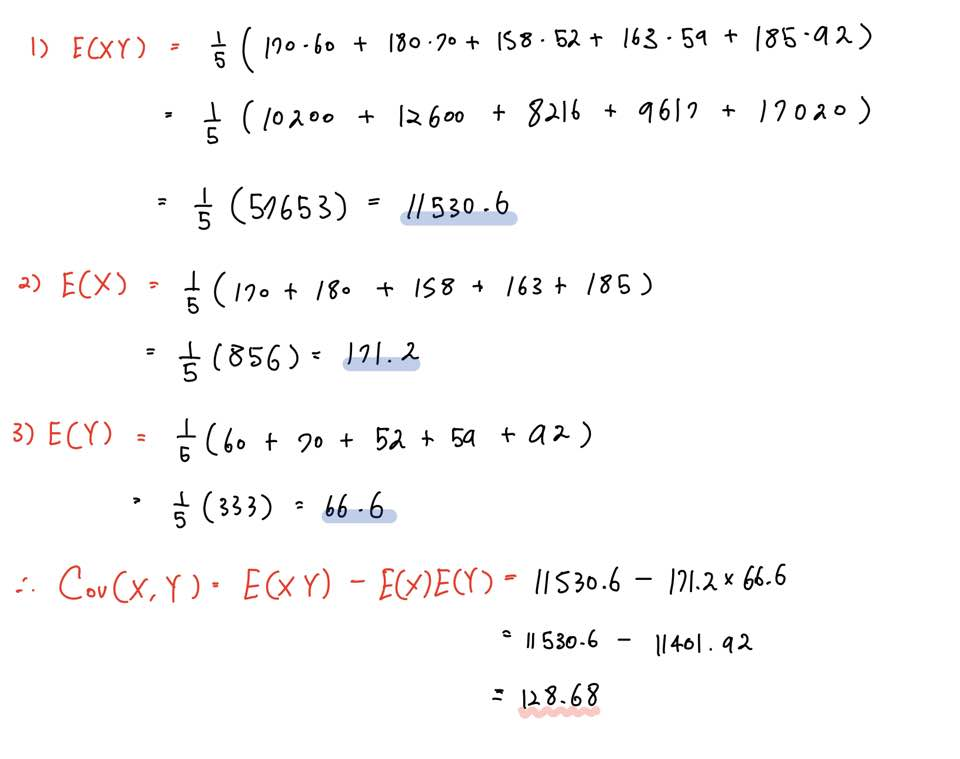 1) E(XY) = 1/5 (170·60 + 180·70 + 158·52 + 163·59 + 185·92)
= 1/5 (10200 + 12600 + 8216 + 9617 + 17020)
= 1/5 (57653) = 11530.6
2) E(X) = 1/5 (170 + 180 + 158 + 163 + 185)
= 1/5 (856) = 171.2
3) E(Y) = 1/5 (60 + 70 + 52 + 59 + 92)
= 1/5 (333) = 66.6
∴ Cov(X,Y) = E(XY) - E(X)E(Y) = 11530.6 - 171.2 × 66.6
= 11530.6 - 11401.92
= 128.68